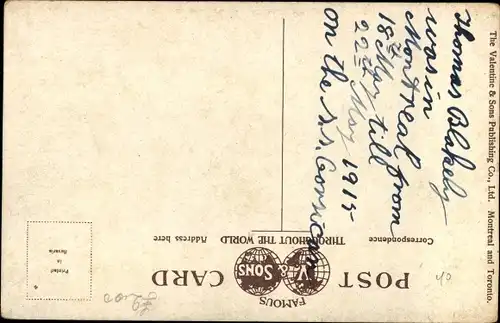 Thomas Blakely
was in
Montreal from
18th May till
22nd May 1915
on the S.S. Corsican
The Valentine & Sons Publishing Co., Ltd. Montreal and Toronto.
POST CARD
FAMOUS
V. & SONS
THROUGHOUT THE WORLD
Correspondence
Address here
Printed
in
Bavaria
40